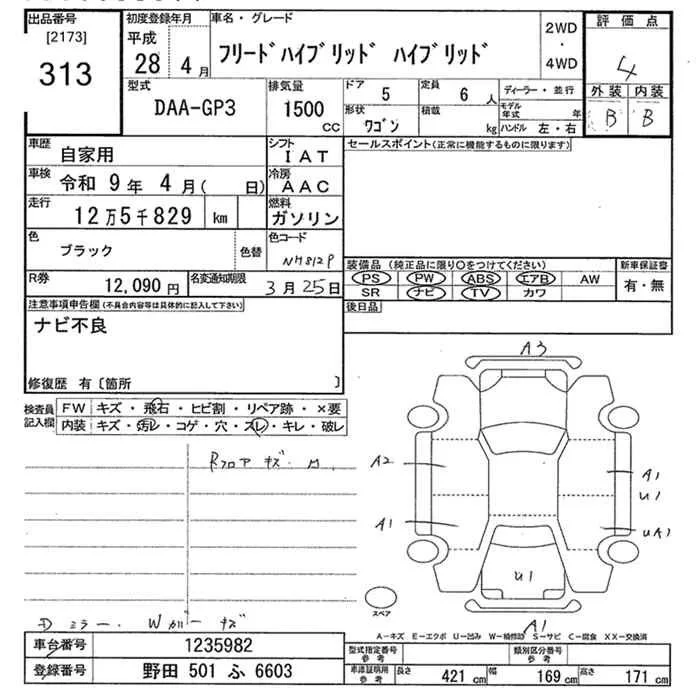 出品番号
[2173]
313
初度登録年月
平成
28 4月
車名・グレード
フリードハイブリッド ハイブリッド
2WD
・
4WD
評価点
4
外装 内装
B B
型式
DAA-GP3
排気量
1500
CC
ドア 5
定員 6 人
形状 ワゴン
積載 kg
ディーラー・並行
モデル年式 年
ハンドル 左・右
車歴 自家用
シフト IAT
セールスポイント(正常に機能するものに限ります)
車検 令和 9年 4月( 日)
冷房 AAC
走行 12万5千829 km
燃料 ガソリン
色 ブラック 色替
色コード NH812P
R券 12,090円
名変通知期限 3月25日
装備品 (純正品に限り○をつけてください)
PS PW ABS エアB AW
SR ナビ TV カワ
新車保証書
有・無
後日品
注意事項申告欄(不具合内容等は具体的に記入して下さい)
ナビ不良
修復歴 有〔箇所 〕
検査員記入欄
FW キズ・飛石・ヒビ割・リペア跡・×要
内装 キズ・汚レ・コゲ・穴・スレ・キレ・破レ
Rフロア キズ.
A3
A2
A1
A1
U1
UA1
U1
A1
スペア
Dミラー. Wガーキズ
A-キズ E-エクボ U-凹み W-補修跡 S-サビ C-腐食 XX-交換済
車台番号 1235982
登録番号 野田 501 ふ 6603
型式指定番号 参考
類別区分番号 参考
車庫証明用 参考
長さ 421 cm
幅 169 cm
高さ 171 cm